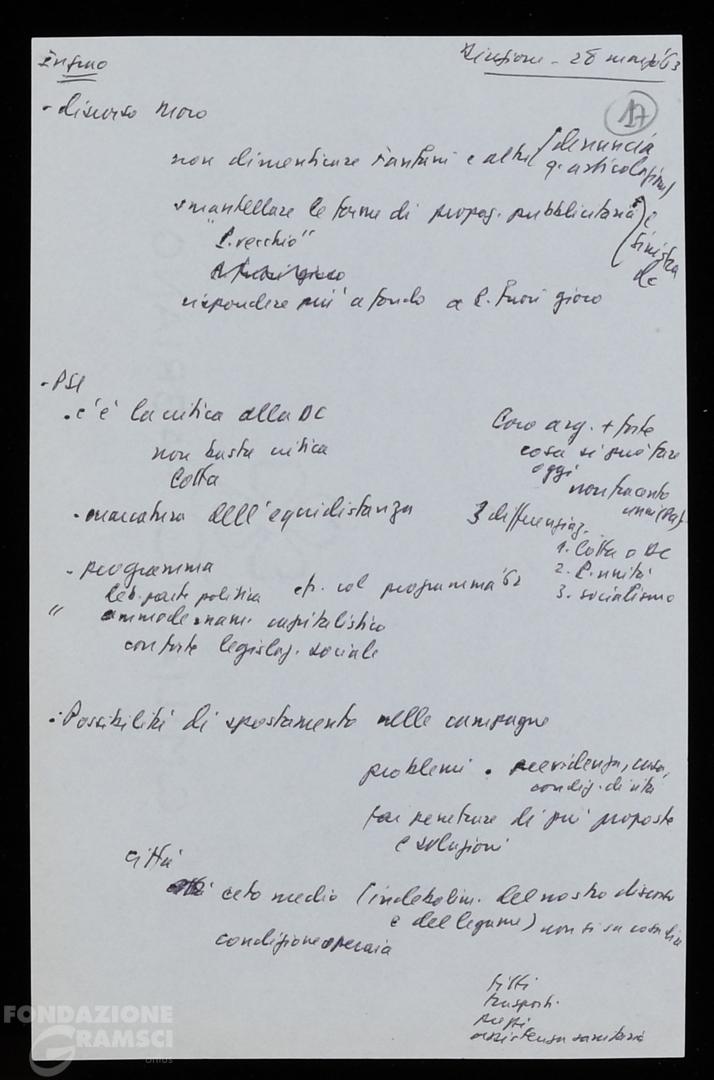 Direzione - 28 marzo '63
17
- discorso Moro
non dimenticare Fanfani e altri (denuncia
articolazioni)
smantellare le forme di propag. pubblicitaria
e sinistra
dc
"P. vecchio"
rispondere più a fondo a P. fuori gioco
- PSI
. c'è la critica alla DC
non basta critica
lotta
- marcatura dell'equidistanza
Loro arg. + forte
cosa si può fare
oggi
3 differenziaz.
1. lotta a DC
2. P. unità
3. socialismo
- programma
deb. parte politica cfr. col programma '62
" ammodernam. capitalistico
con forte legislaz. sociale
- Possibilità di spostamento nelle campagne
problemi . previdenza, casa,
condiz. di vita
far penetrare di più proposte
e soluzioni
città
ceto medio (indebolim. del nostro discorso
e del legame) non si sa cosa
condizione operaia
fitti
trasporti
prezzi
assistenza sanitaria
FONDAZIONE
GRAMSCI
onlus